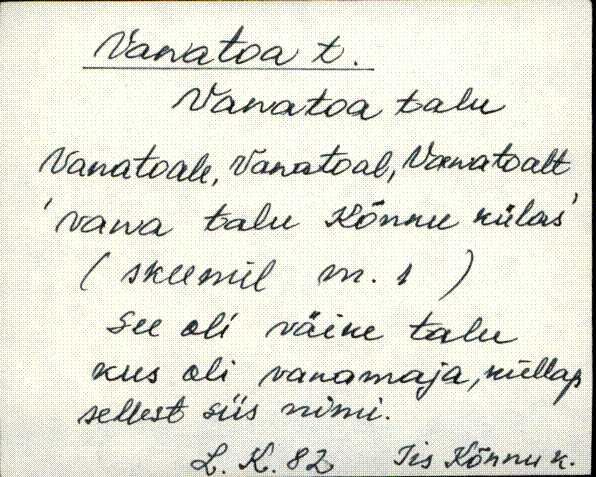 Vanatoa t.
Vanatoa talu
Vanatoale, Vanatoal, Vanatoalt
'vana talu Kõnnu külas'
(skeemil nr. 1)
See oli väike talu
kus oli vanamaja, küllap
sellest siis nimi.
L. K. 82 Iis Kõnnu k.